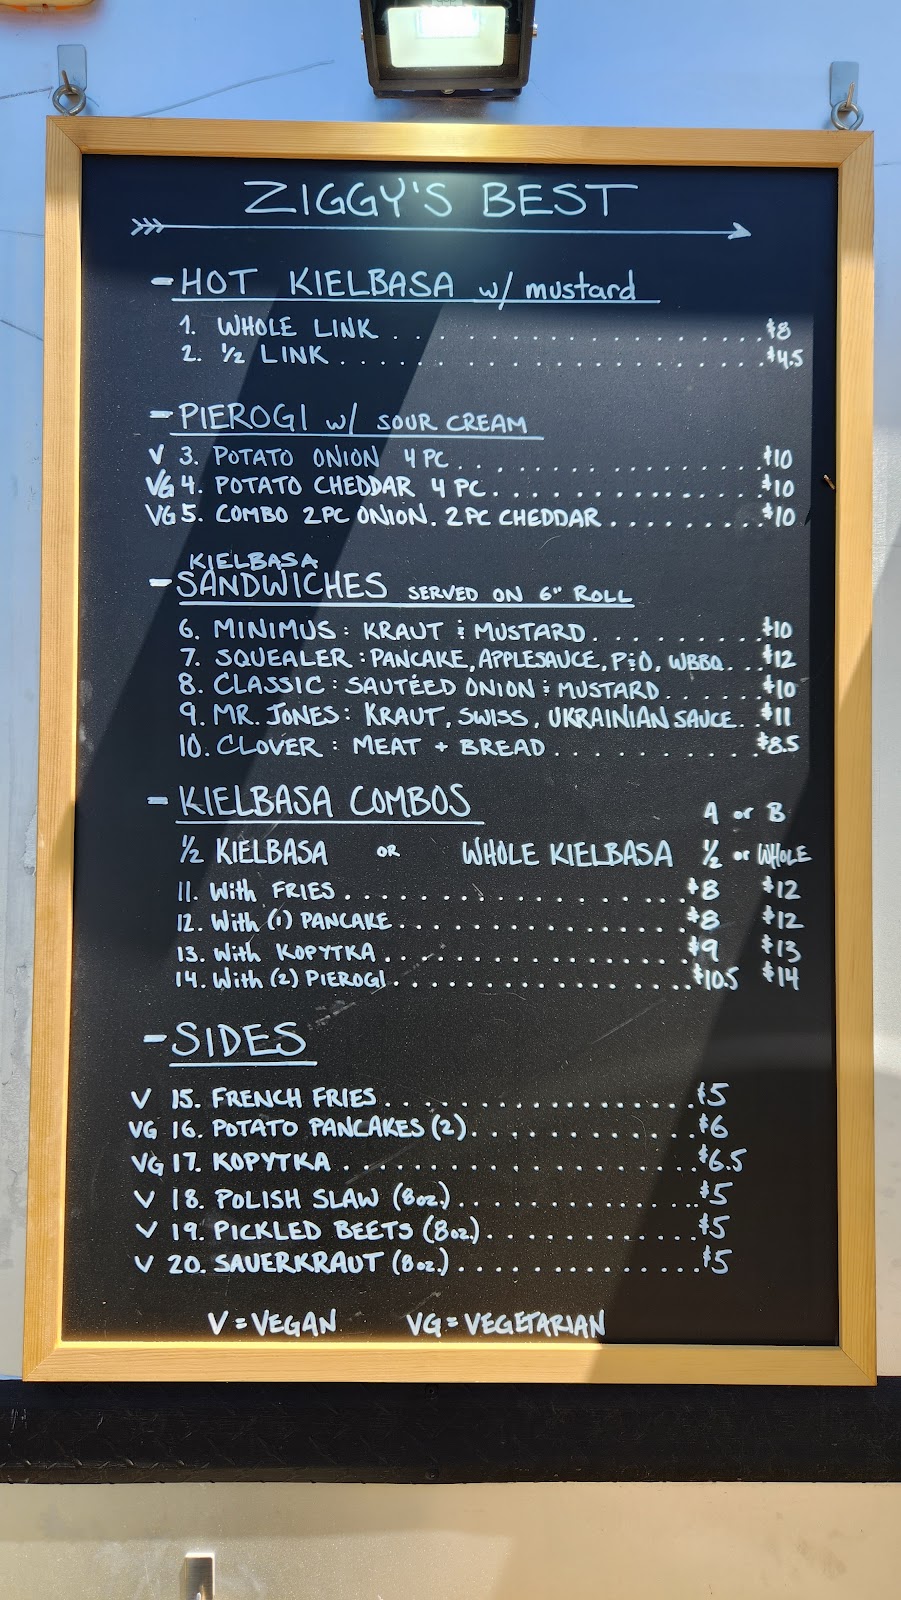 ZIGGY'S BEST
- HOT KIELBASA w/ mustard
1. WHOLE LINK . . . . . . . . . . . . . . . . . . $8
2. ½ LINK . . . . . . . . . . . . . . . . . . . . $4.5
- PIEROGI w/ SOUR CREAM
V 3. POTATO ONION 4 PC. . . . . . . . . . . . . . . $10
VG 4. POTATO CHEDDAR 4 PC. . . . . . . . . . . . . . $10
VG 5. COMBO 2PC ONION. 2PC CHEDDAR . . . . . . . . . $10
KIELBASA
- SANDWICHES SERVED ON 6" ROLL
6. MINIMUS: KRAUT & MUSTARD. . . . . . . . . $10
7. SQUEALER: PANCAKE, APPLESAUCE, P&O, WBBQ... $12
8. CLASSIC: SAUTÉED ONION & MUSTARD. . . . . . $10
9. MR. JONES: KRAUT, SWISS, UKRAINIAN SAUCE.. $11
10. CLOVER: MEAT + BREAD . . . . . . . . . . . $8.5
- KIELBASA COMBOS A or B
½ KIELBASA OR WHOLE KIELBASA ½ or WHOLE
11. With FRIES. . . . . . . . . . . . . . . . . $8 $12
12. With (1) PANCAKE. . . . . . . . . . . . . . . $8 $12
13. With KOPYTKA. . . . . . . . . . . . . . . . $9 $13
14. With (2) PIEROGI. . . . . . . . . . . . . . . $10.5 $14
- SIDES
V 15. FRENCH FRIES. . . . . . . . . . . . . . . . . $5
VG 16. POTATO PANCAKES (2). . . . . . . . . . . . . $6
VG 17. KOPYTKA . . . . . . . . . . . . . . . . . . . $6.5
V 18. POLISH SLAW (8oz.). . . . . . . . . . . . . . $5
V 19. PICKLED BEETS (8oz.). . . . . . . . . . . . $5
V 20. SAUERKRAUT (8oz.). . . . . . . . . . . . . . $5
V = VEGAN VG = VEGETARIAN